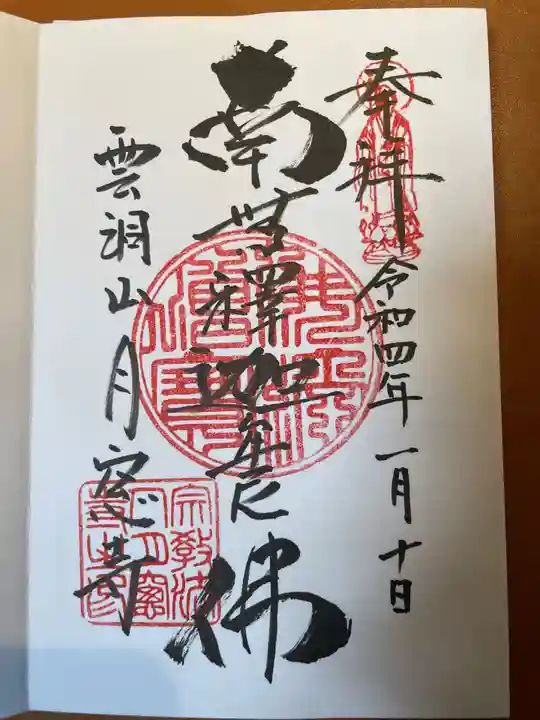 奉拝
令和四年一月十日
南無釋迦牟尼佛
雲洞山 月窓寺
宗教法人月窓寺之印